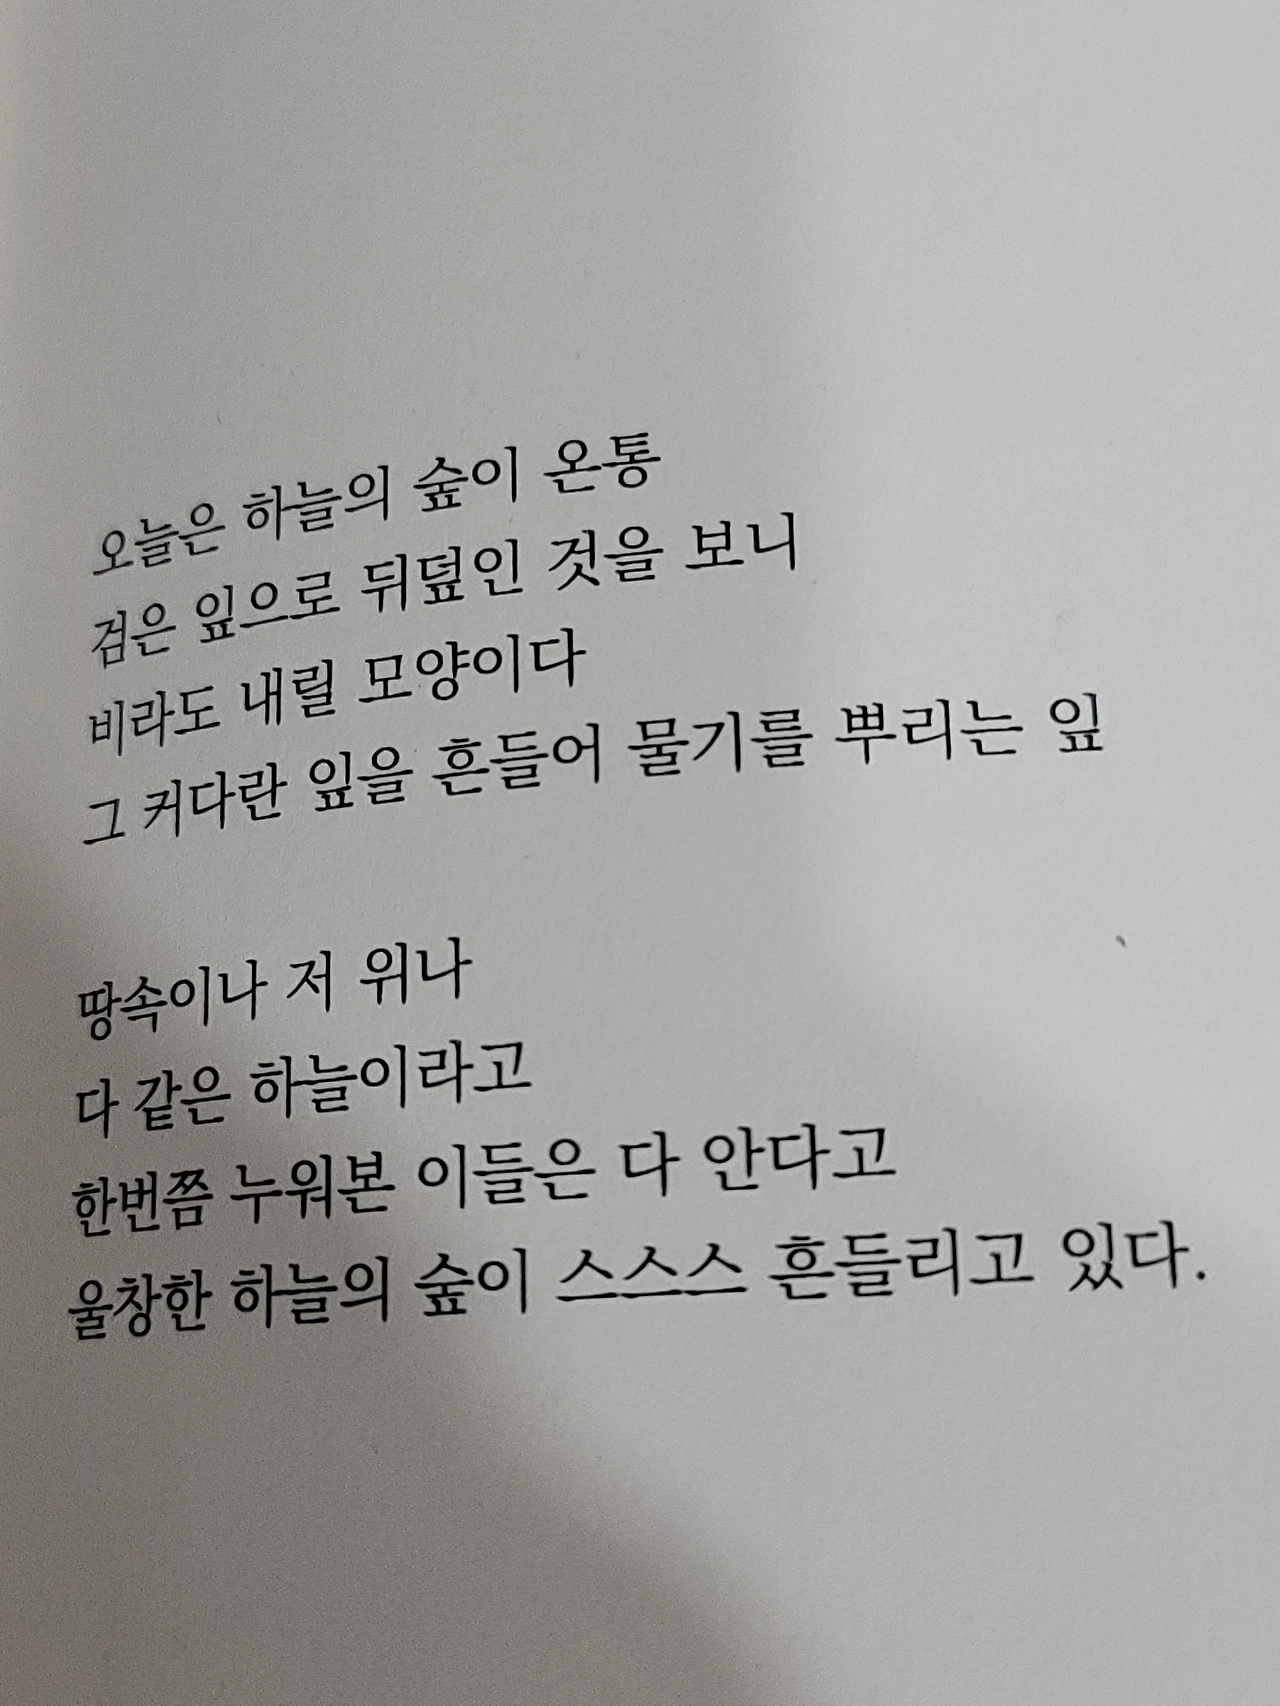 오늘은 하늘의 숲이 온통
검은 잎으로 뒤덮인 것을 보니
비라도 내릴 모양이다
그 커다란 잎을 흔들어 물기를 뿌리는 잎
땅속이나 저 위나
다 같은 하늘이라고
한번쯤 누워본 이들은 다 안다고
울창한 하늘의 숲이 스스스 흔들리고 있다.